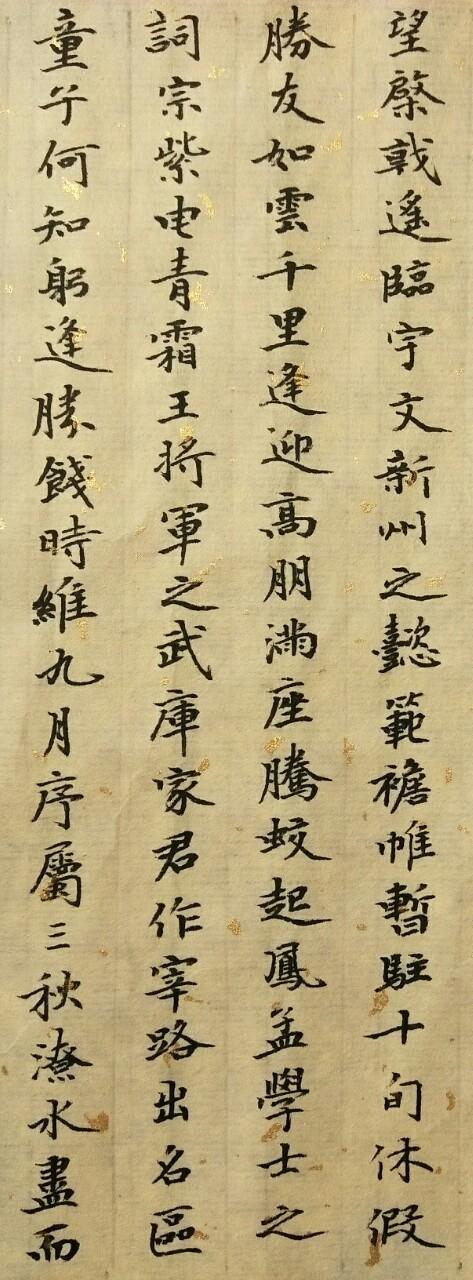 望棨戟遙臨宇文新州之懿範襜帷暫駐十旬休假
勝友如雲千里逢迎高朋滿座騰蛟起鳳孟學士之
詞宗紫电青霜王將軍之武庫家君作宰路出名區
童子何知躬逢勝餞時維九月序屬三秋潦水盡而